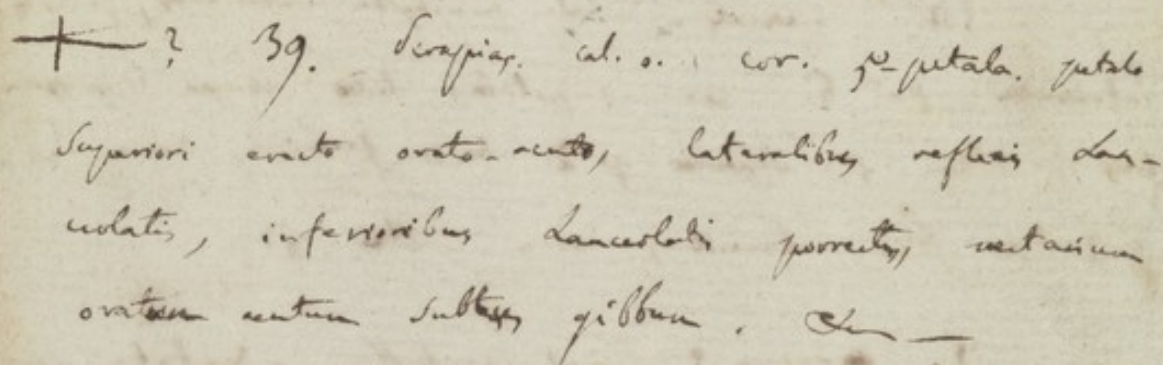 + ? 39. Serapias. cal. o. cor. 5-petala. petalo
superiori erecto ovato-acuto, lateralibus reflexis Lan-
ceolatis, inferioribus Lanceolatis porrectis, nectarium
ovatum acutum subtus gibbum.